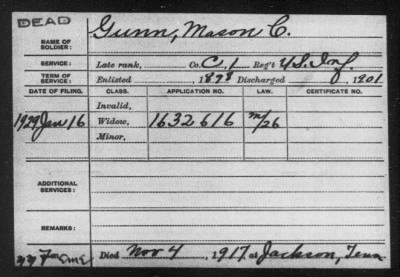 DEAD
NAME OF SOLDIER: Gunn, Mason C.
SERVICE: Late rank, Co. C, 1 Reg't U.S. Inf.
TERM OF SERVICE: Enlisted , 1898 Discharged , 1901
DATE OF FILING. CLASS. APPLICATION NO. LAW. CERTIFICATE NO.
Invalid,
1929 Jan 16 Widow, 1632616 m/26
Minor,
ADDITIONAL SERVICES:
REMARKS:
Died Nov 4, 1917 at Jackson, Tenn